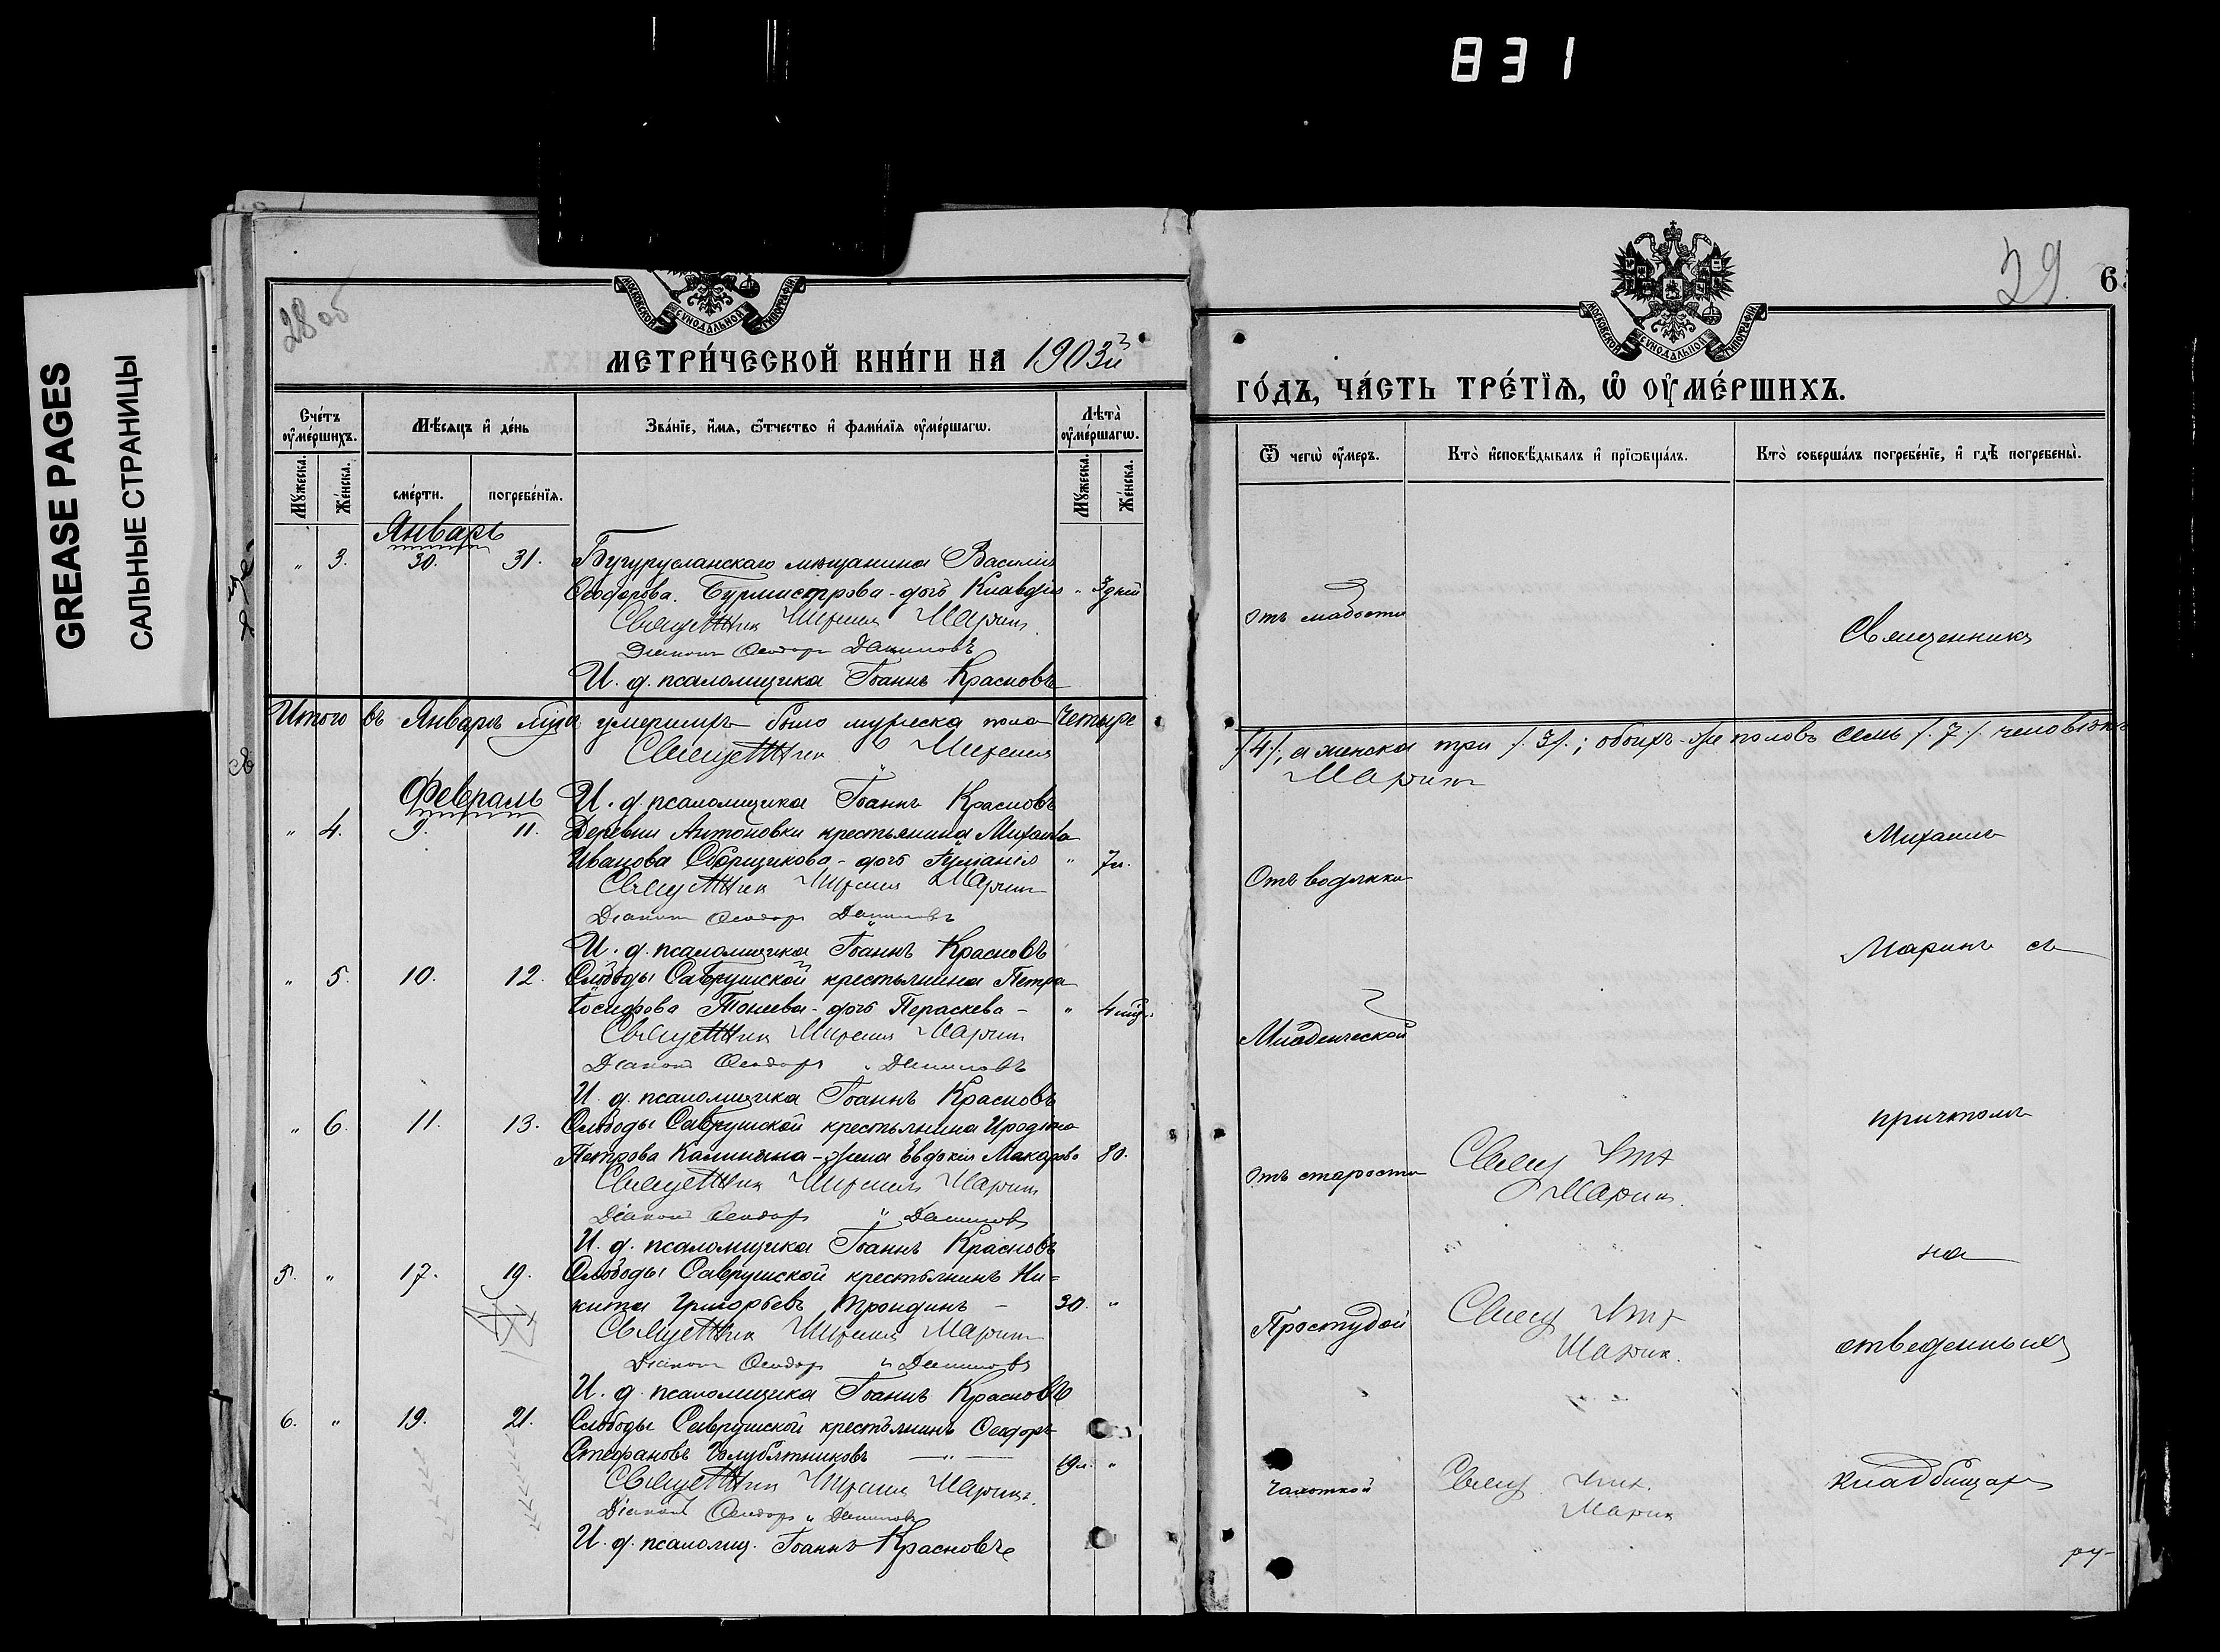 831
GREASE PAGES
САЛЬНЫЕ СТРАНИЦЫ
28 об
МОСКОВСКОЙ СѴНОДАЛЬНОЙ ТИПОГРАФІИ
МЕТРИ́ЧЕСКОЙ КНИ́ГИ НА 1903й
Сче́тъ ᲂу҆ме́ршихъ.
Мѣ́сяцъ и҆ де́нь
Зва́нїе, и҆́мѧ, ѻ҆́тчество и҆ фами́лїѧ ᲂу҆ме́ршагѡ.
Лѣ́та ᲂу҆ме́ршагѡ.
Мꙋ́жеска.
Же́нска.
сме́рти.
погребе́нїѧ.
Мꙋ́жеска.
Же́нска.
Январь
" 3. 30. 31. Бугурусланскаго мѣщанина Василія
Ѳеодорова Бурмистрова - дочь Клавдія " 3 дней
Священник Михаил Марин
Діакон Ѳеодор Данилов
И. д. псаломщика Іоаннъ Красновъ
Итого въ Январѣ мцѣ умершихъ было мужеска пола четыре
Священник Михаил
Февраль И. д. псаломщика Іоаннъ Красновъ
" 4. 9. 11. Деревни Антоновки крестьянина Михаила
Иванова Сборщикова - дочь " 7 л.
Священник Михаил Марин
Діакон Ѳеодор Данилов
И. д. псаломщика Іоаннъ Красновъ
" 5. 10. 12. Слободы Саврушской крестьянина Петра
Іосифова - дочь Параскева - " 4 мц.
Священник Михаил Марин
Діакон Ѳеодор Данилов
И. д. псаломщика Іоаннъ Красновъ
" 6. 11. 13. Слободы Саврушской крестьянина Иродіона
Петрова Калинина - жена Евдокія Макарова 80.
Священник Михаил Марин
Діакон Ѳеодор Данилов
И. д. псаломщика Іоаннъ Красновъ
5. " 17. 19. Слободы Саврушской крестьянинъ Ни=
кита Григорьевъ Трондинъ - 30. "
Священник Михаил Марин
Діакон Ѳеодор Данилов
И. д. псаломщика Іоаннъ Красновъ
6. " 19. 21. Слободы Саврушской крестьянинъ Ѳеодоръ
Стефановъ Голубятниковъ — " — 19 л. "
Священник Михаил Марин
Діакон Ѳеодор Данилов
И. д. псаломщ. Іоаннъ Красновъ
29
6
МОСКОВСКОЙ СѴНОДАЛЬНОЙ ТИПОГРАФІИ
ГО́ДЪ, ЧА́СТЬ ТРЕ́ТЇѦ, Ѡ҆ ОУ҆МЕ́РШИХЪ.
Ѿ чегѡ̀ ᲂу҆́меръ.
Кто̀ и҆сповѣ́дывалъ и҆ прїѡбща́лъ.
Кто̀ соверша́лъ погребе́нїе, и҆ гдѣ̀ погребены̀.
Отъ слабости
Священникъ
/4/, а женска три /3/; обоихъ же половъ семь /7/ человѣкъ
Марин
Михаилъ
Отъ водянки
Маринъ съ
Младенческой
причтомъ
Отъ старости
Свящ Мих
Марин.
на
Простудой
Свящ Мих
Марин.
отведенныхъ
Чахоткой
Свящ. Мих.
Марин
кладбищахъ
ру-